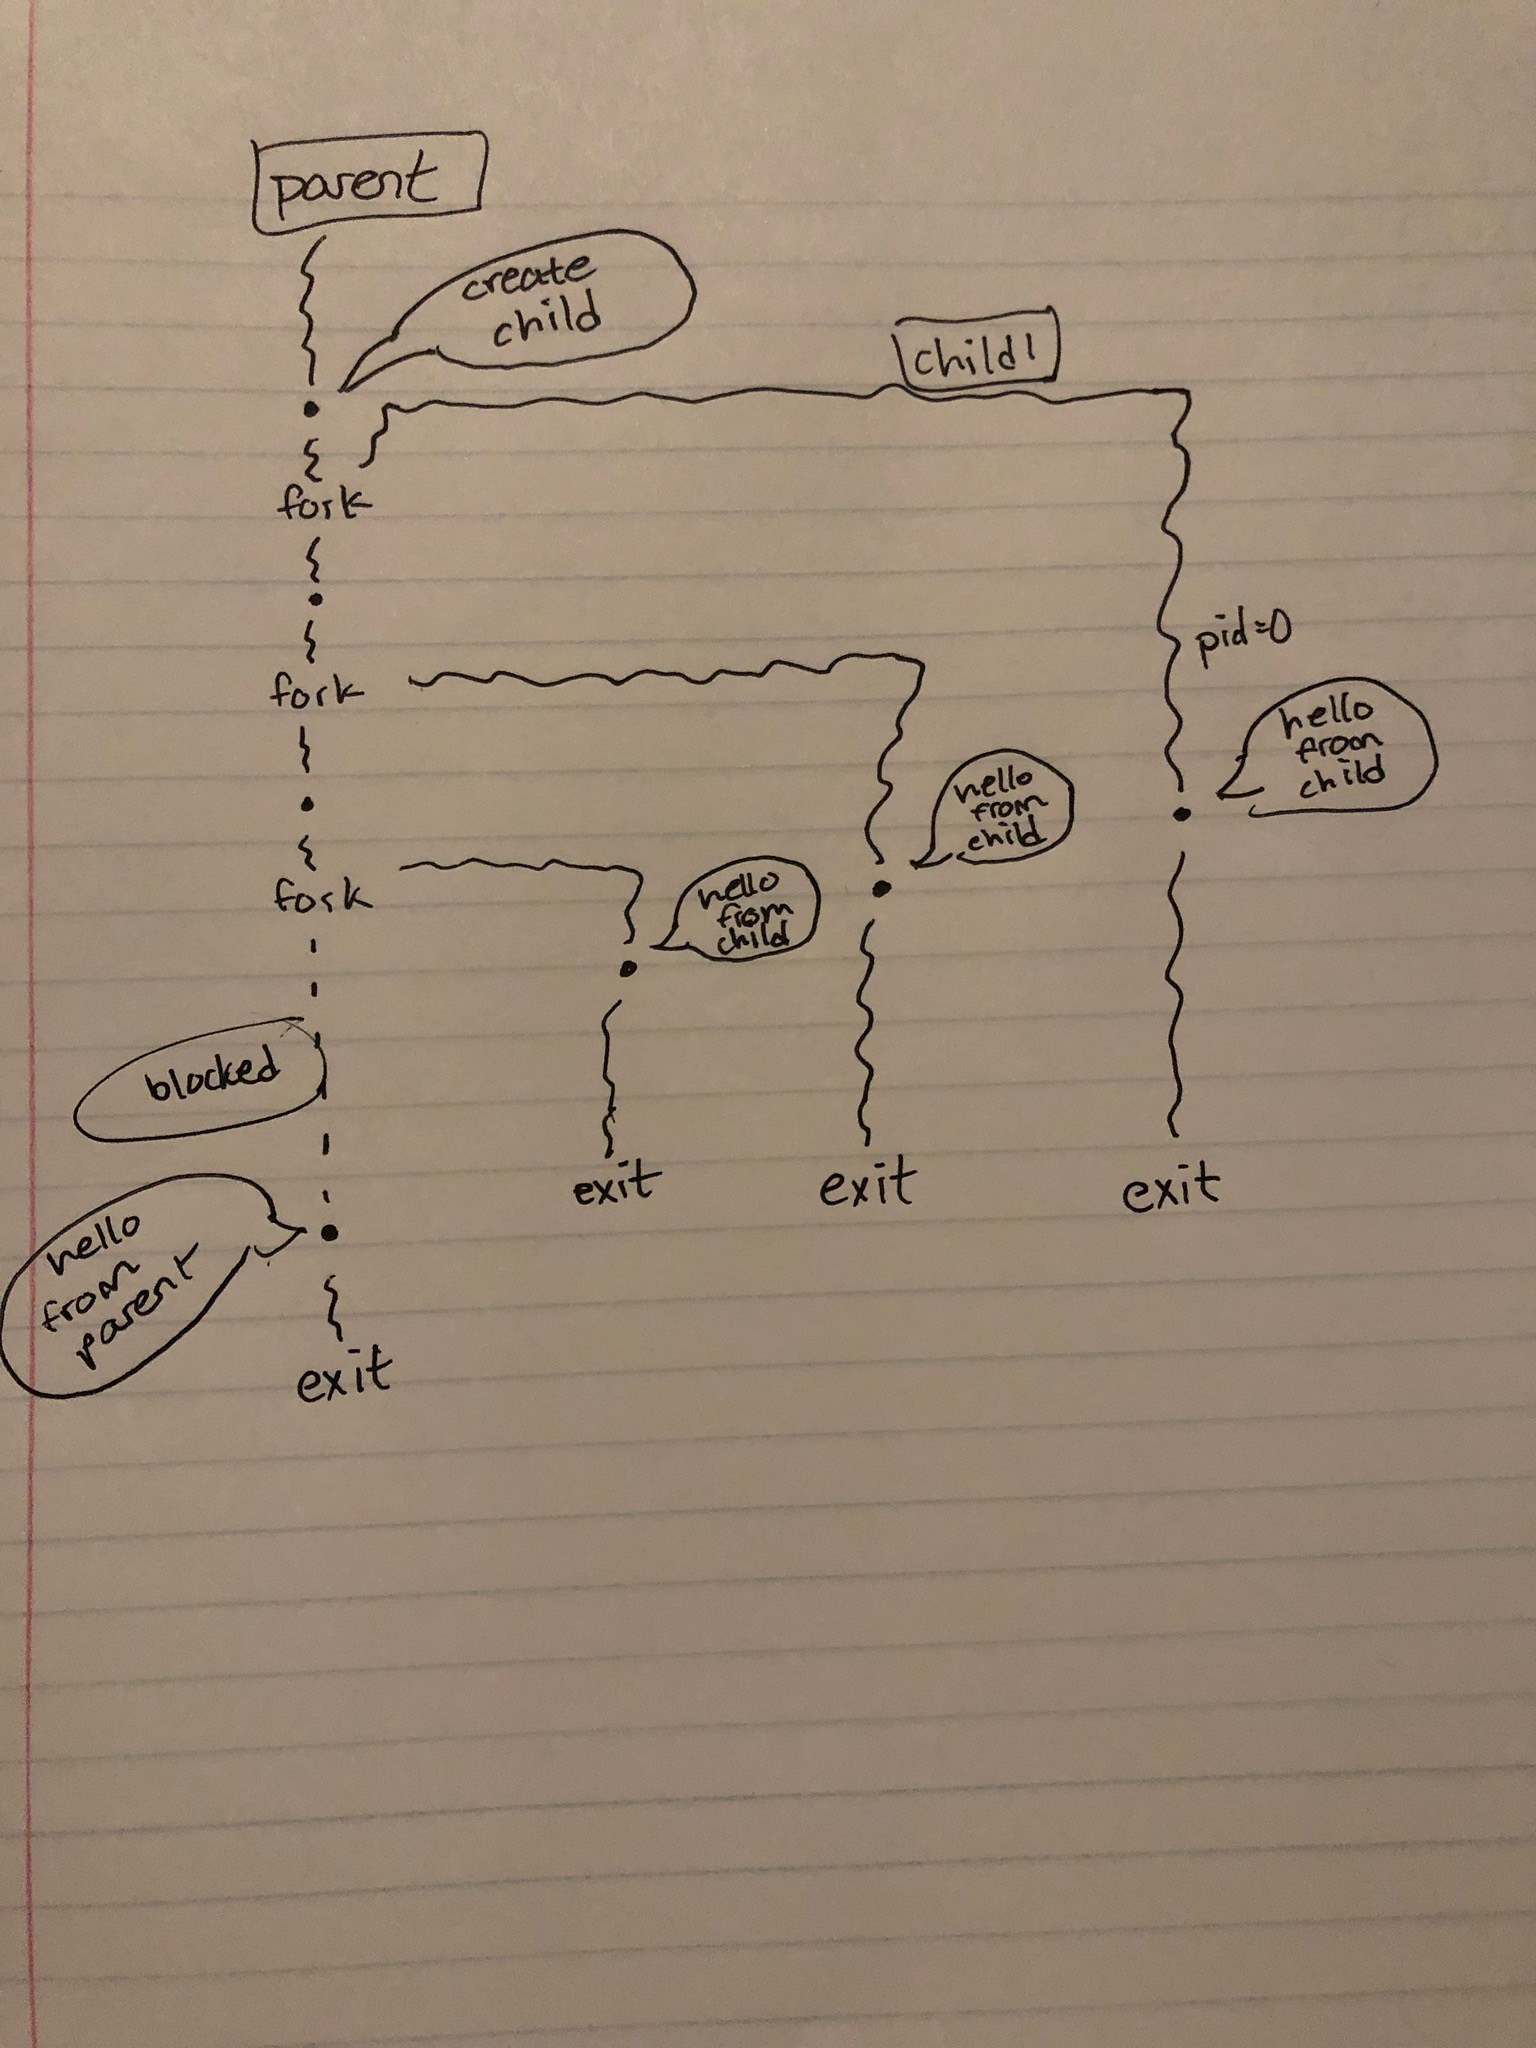 parent
create
child
child1
fork
pid=0
fork
hello
from
child
hello
from
child
fork
hello
from
child
blocked
exit
exit
exit
hello
from
parent
exit